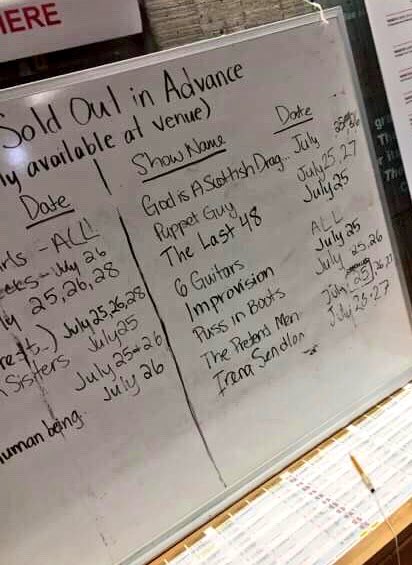 IERE
Sold Out in Advance
ly available at venue)
Date
irls - ALL
July 26
25, 26, 28
July 25, 26, 28
Sisters July 25
July 25 + 26
July 26
Human being
Show Name Date
God is A Scottish Drag... July
Puppet Guy July 25, 27
The Last 48 July 25
6 Guitars ALL
Improvision July 25
Puss in Boots July 25, 26
The Pretend Men July 25, 26, 27
Irena Sendlor July 25-27